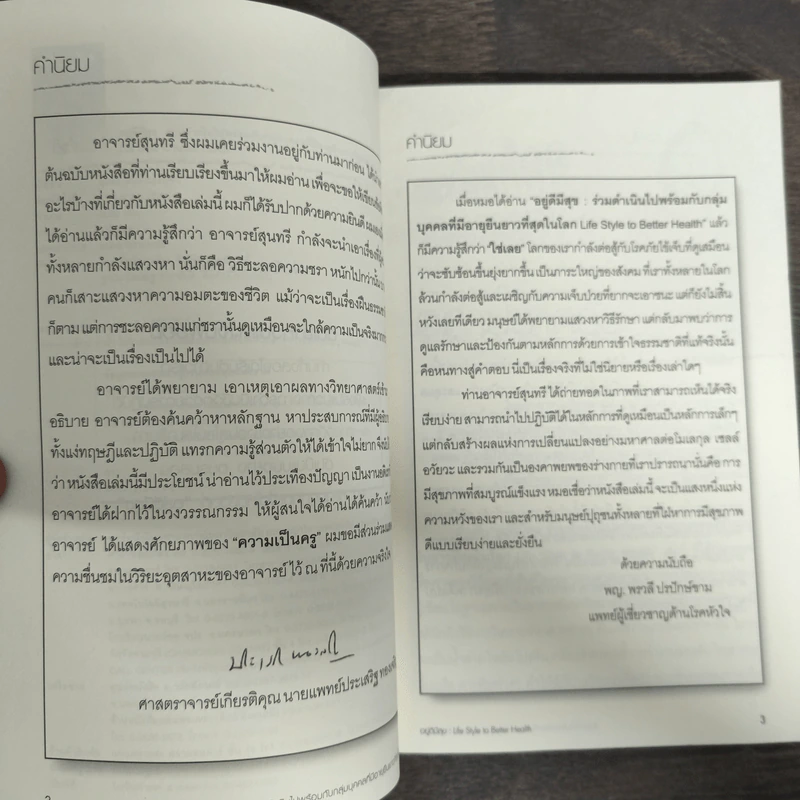 คำนิยม
อาจารย์สุนทรี ซึ่งผมเคยร่วมงานอยู่กับท่านมาก่อน
ต้นฉบับหนังสือที่ท่านเรียบเรียงขึ้นมาให้ผมอ่าน เพื่อจะขอให้เขียน
อะไรบ้างที่เกี่ยวกับหนังสือเล่มนี้ ผมก็ได้รับปากด้วยความยินดี
ได้อ่านแล้วก็มีความรู้สึกว่า อาจารย์สุนทรี กำลังจะนำเอาเรื่อง
ทั้งหลายกำลังแสวงหา นั่นก็คือ วิธีชะลอความชรา หนักไปกว่านั้น
คนก็เสาะแสวงหาความอมตะของชีวิต แม้ว่าจะเป็นเรื่องฝืนธรรม
ก็ตาม แต่การชะลอความแก่ชรานั้นดูเหมือนจะใกล้ความเป็นจริง
และน่าจะเป็นเรื่องเป็นไปได้
อาจารย์ได้พยายาม เอาเหตุเอาผลทางวิทยาศาสตร์
อธิบาย อาจารย์ต้องค้นคว้าหาหลักฐาน หาประสบการณ์ที่มี
ทั้งแง่ทฤษฎีและปฏิบัติ แทรกความรู้ส่วนตัวให้ได้เข้าใจไม่ยาก
ว่า หนังสือเล่มนี้มีประโยชน์ น่าอ่านไว้ประเทืองปัญญา เป็นงาน
อาจารย์ได้ฝากไว้ในวงวรรณกรรม ให้ผู้สนใจได้อ่านได้ค้นคว้า
อาจารย์ ได้แสดงศักยภาพของ "ความเป็นครู" ผมขอมีส่วนร่วม
ความชื่นชมในวิริยะอุตสาหะของอาจารย์ไว้ ณ ที่นี้ด้วยความจริงใจ
ศาสตราจารย์เกียรติคุณ นายแพทย์ประเสริฐ
คำนิยม
เมื่อหมอได้อ่าน "อยู่ดีมีสุข : ร่วมดำเนินไปพร้อมกับกลุ่ม
บุคคลที่มีอายุยืนยาวที่สุดในโลก Life Style to Better Health" แล้ว
ก็มีความรู้สึกว่า "ใช่เลย" โลกของเรากำลังต่อสู้กับโรคภัยไข้เจ็บที่ดูเสมือน
ว่าจะซับซ้อนขึ้นยุ่งยากขึ้น เป็นภาระใหญ่ของสังคม ที่เราทั้งหลายในโลก
ล้วนกำลังต่อสู้และเผชิญกับความเจ็บป่วยที่ยากจะเอาชนะ แต่ก็ยังไม่สิ้น
หวังเลยทีเดียว มนุษย์ได้พยายามแสวงหาวิธีรักษา แต่กลับมาพบว่าการ
ดูแลรักษาและป้องกันตามหลักการด้วยการเข้าใจธรรมชาติที่แท้จริงนั้น
คือหนทางสู่คำตอบ นี่เป็นเรื่องจริงที่ไม่ใช่นิยายหรือเรื่องเล่าใดๆ
ท่านอาจารย์สุนทรี ได้ถ่ายทอดในภาพที่เราสามารถเห็นได้จริง
เรียบง่าย สามารถนำไปปฏิบัติได้ในหลักการที่ดูเหมือนเป็นหลักการเล็กๆ
แต่กลับสร้างผลแห่งการเปลี่ยนแปลงอย่างมหาศาลต่อโมเลกุล เซลล์
อวัยวะ และรวมกันเป็นองคาพยพของร่างกายที่เราปรารถนานั่นคือ การ
มีสุขภาพที่สมบูรณ์แข็งแรง หมอเชื่อว่าหนังสือเล่มนี้ จะเป็นแสงหนึ่งแห่ง
ความหวังของเรา และสำหรับมนุษย์ปุถุชนทั้งหลายที่ใฝ่หาการมีสุขภาพ
ดีแบบเรียบง่ายและยั่งยืน
ด้วยความนับถือ
พญ. พรวลี ปรปักษ์ขาม
แพทย์ผู้เชี่ยวชาญด้านโรคหัวใจ
อยู่ดีมีสุข : Life Style to Better Health
3